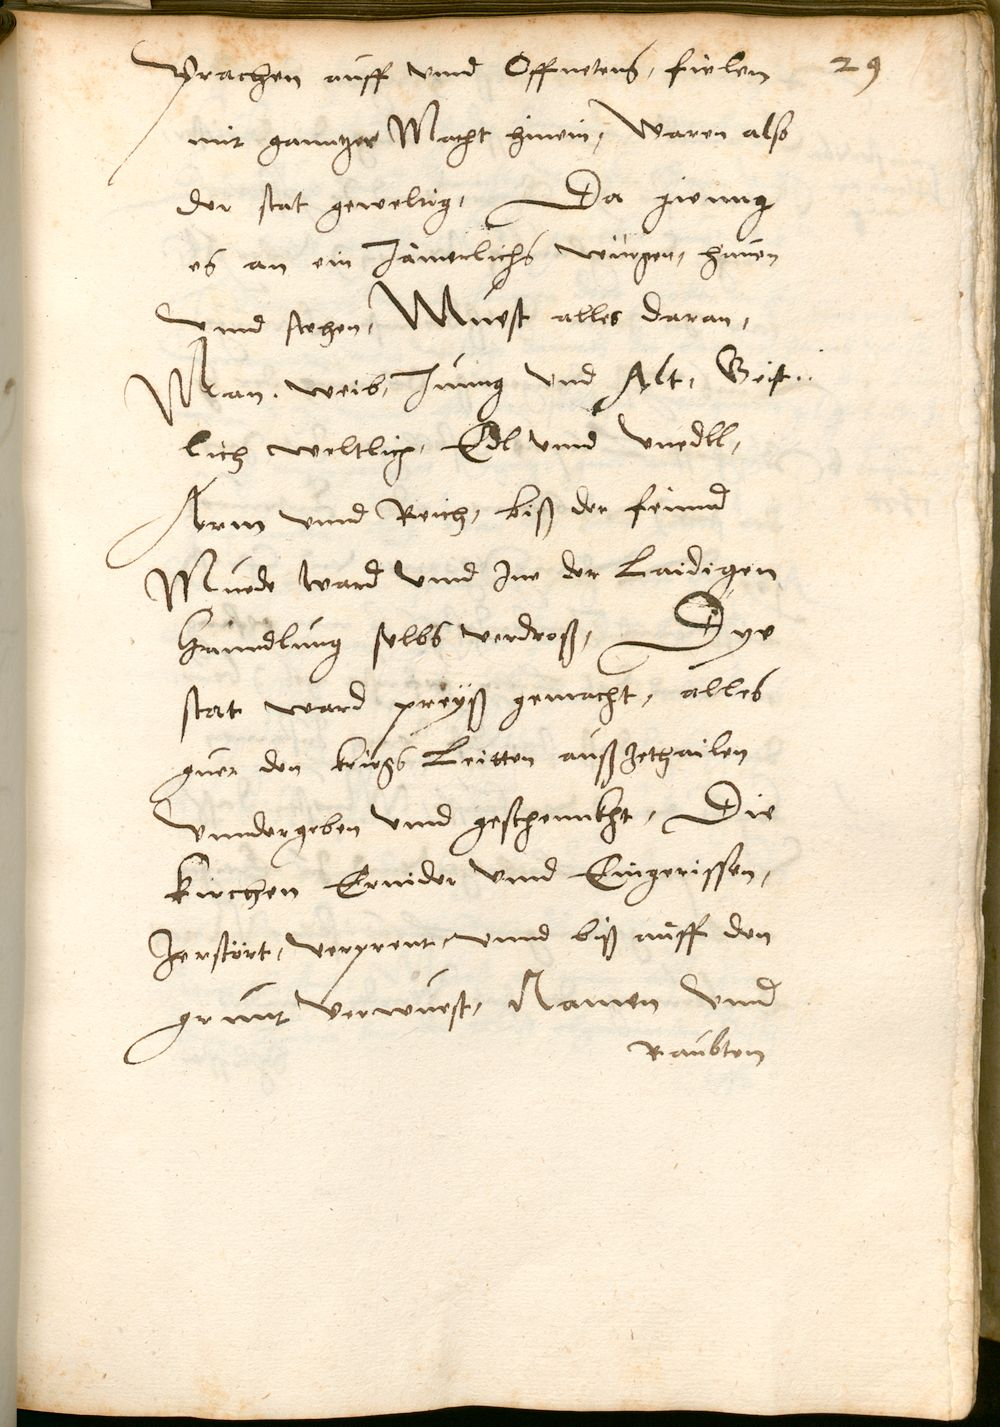 Prachen auff vnnd Offnetens, fielen 29
mit ganntzer Macht hinein, Waren also
der stat geweltig, Da gienng
es an ein Jämerlichs würgen, hauen
vnnd stechen, Muest alles daran,
Man. weib, Junng vnd Alt, Geist..
lich weltlich, Edl vnnd vnedll,
Arm vnnd Reich, biß der feinnd
Muede ward vnnd Jne der Laidigen
hanndlung selbs verdroß, Dye
stat ward preyß gemacht, alles
guet den kriegs Leitten auß zethailen
vnndergeben vnnd geschennkht, Die
kirchen Ernider vnnd Eingerissen,
Zerstört, verprent vnnd biß auff den
grunt Verwuest, Namen vnnd
Raubten